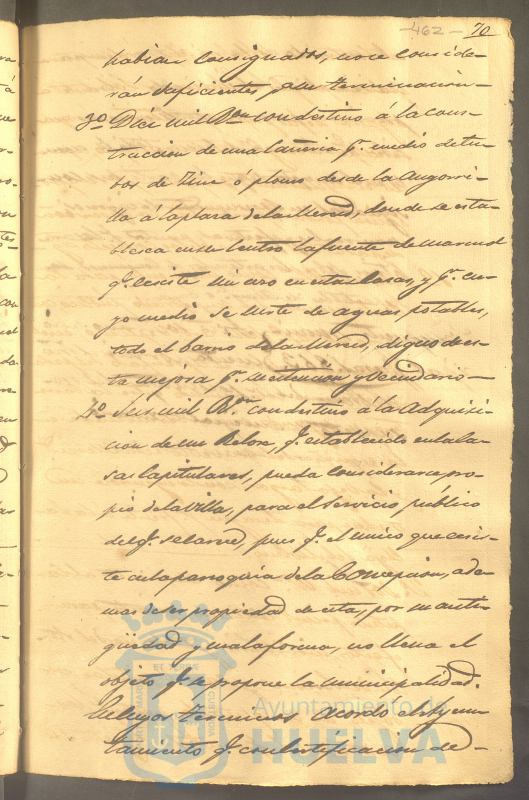 -462- 70
habian consignados, no se conside-
rán suficientes para su terminacion-
3º Diez mil Rºn con destino á la cons-
truccion de una Cañeria p.r medio de tu-
bos de Zinc ó plomo desde la Angorri-
lla á la plaza de la Merced, donde se esta-
blesca en su centro la fuente de marmol
q.e ecsiste sin uso en esta clase, y p.r cu-
yo medio se surte de aguas potables,
todo el barrio de la Merced, digno de es-
ta mejora p.r su estencion y vecindario-
4º Seis mil Rº con destino á la adquisi-
cion de un Relox, q.e establecido en las ca-
sas Capitulares, pueda considerarse pro-
pio de la Villa, para el servicio público
del q.e se carece, pues q.e el unico que ecsis-
te en la parroquia de la Concepcion, ade-
mas de ser propiedad de esta, por su anti-
güedad y mala forma, no llena el
objeto q.e se propone la municipalidad.
En cuyos terminos acordó el Ayun-
tamiento q.e con Certificacion de-
Ayuntamiento de
HUELVA